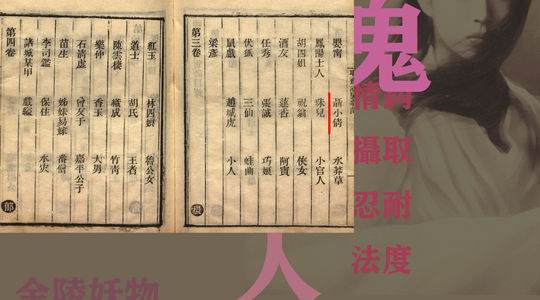 嬰甯 聶小倩 水莽草
鳳陽士人 珠兒 小官人
胡四姐 祝翁 俠女
酒友 蓮香 阿寶
任秀 張誠 巧娘
伏狐 三仙 蛙曲
鼠戲 趙城虎 小人
梁彥
第三卷
紅玉 林四娘 魯公女
道士 胡氏 王者
陳雲棲 織成 竹青
樂仲 香玉 大男
石清虛 曾友于 嘉平公子
苗生 姊妹易嫁 番僧
李司鑑 保住 水災
諸城某甲 戲縊
第四卷
鬼
取耐度
情攝忍法
人
金陵妖物